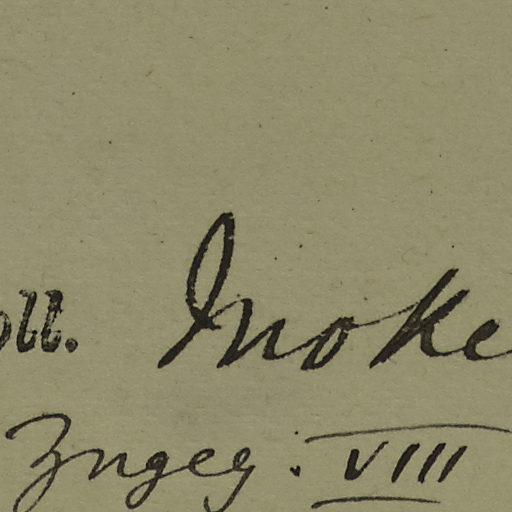 oll. Smoke
Zngeg. VIII